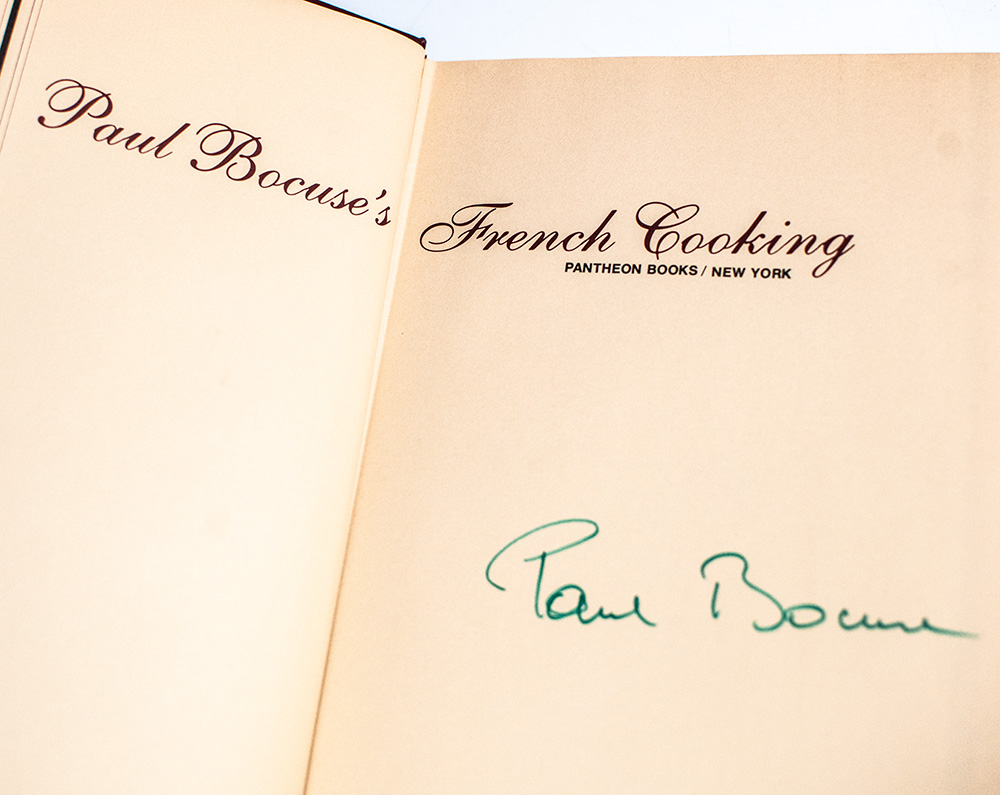 Paul Bocuse's
French Cooking
PANTHEON BOOKS / NEW YORK
Paul Bocuse